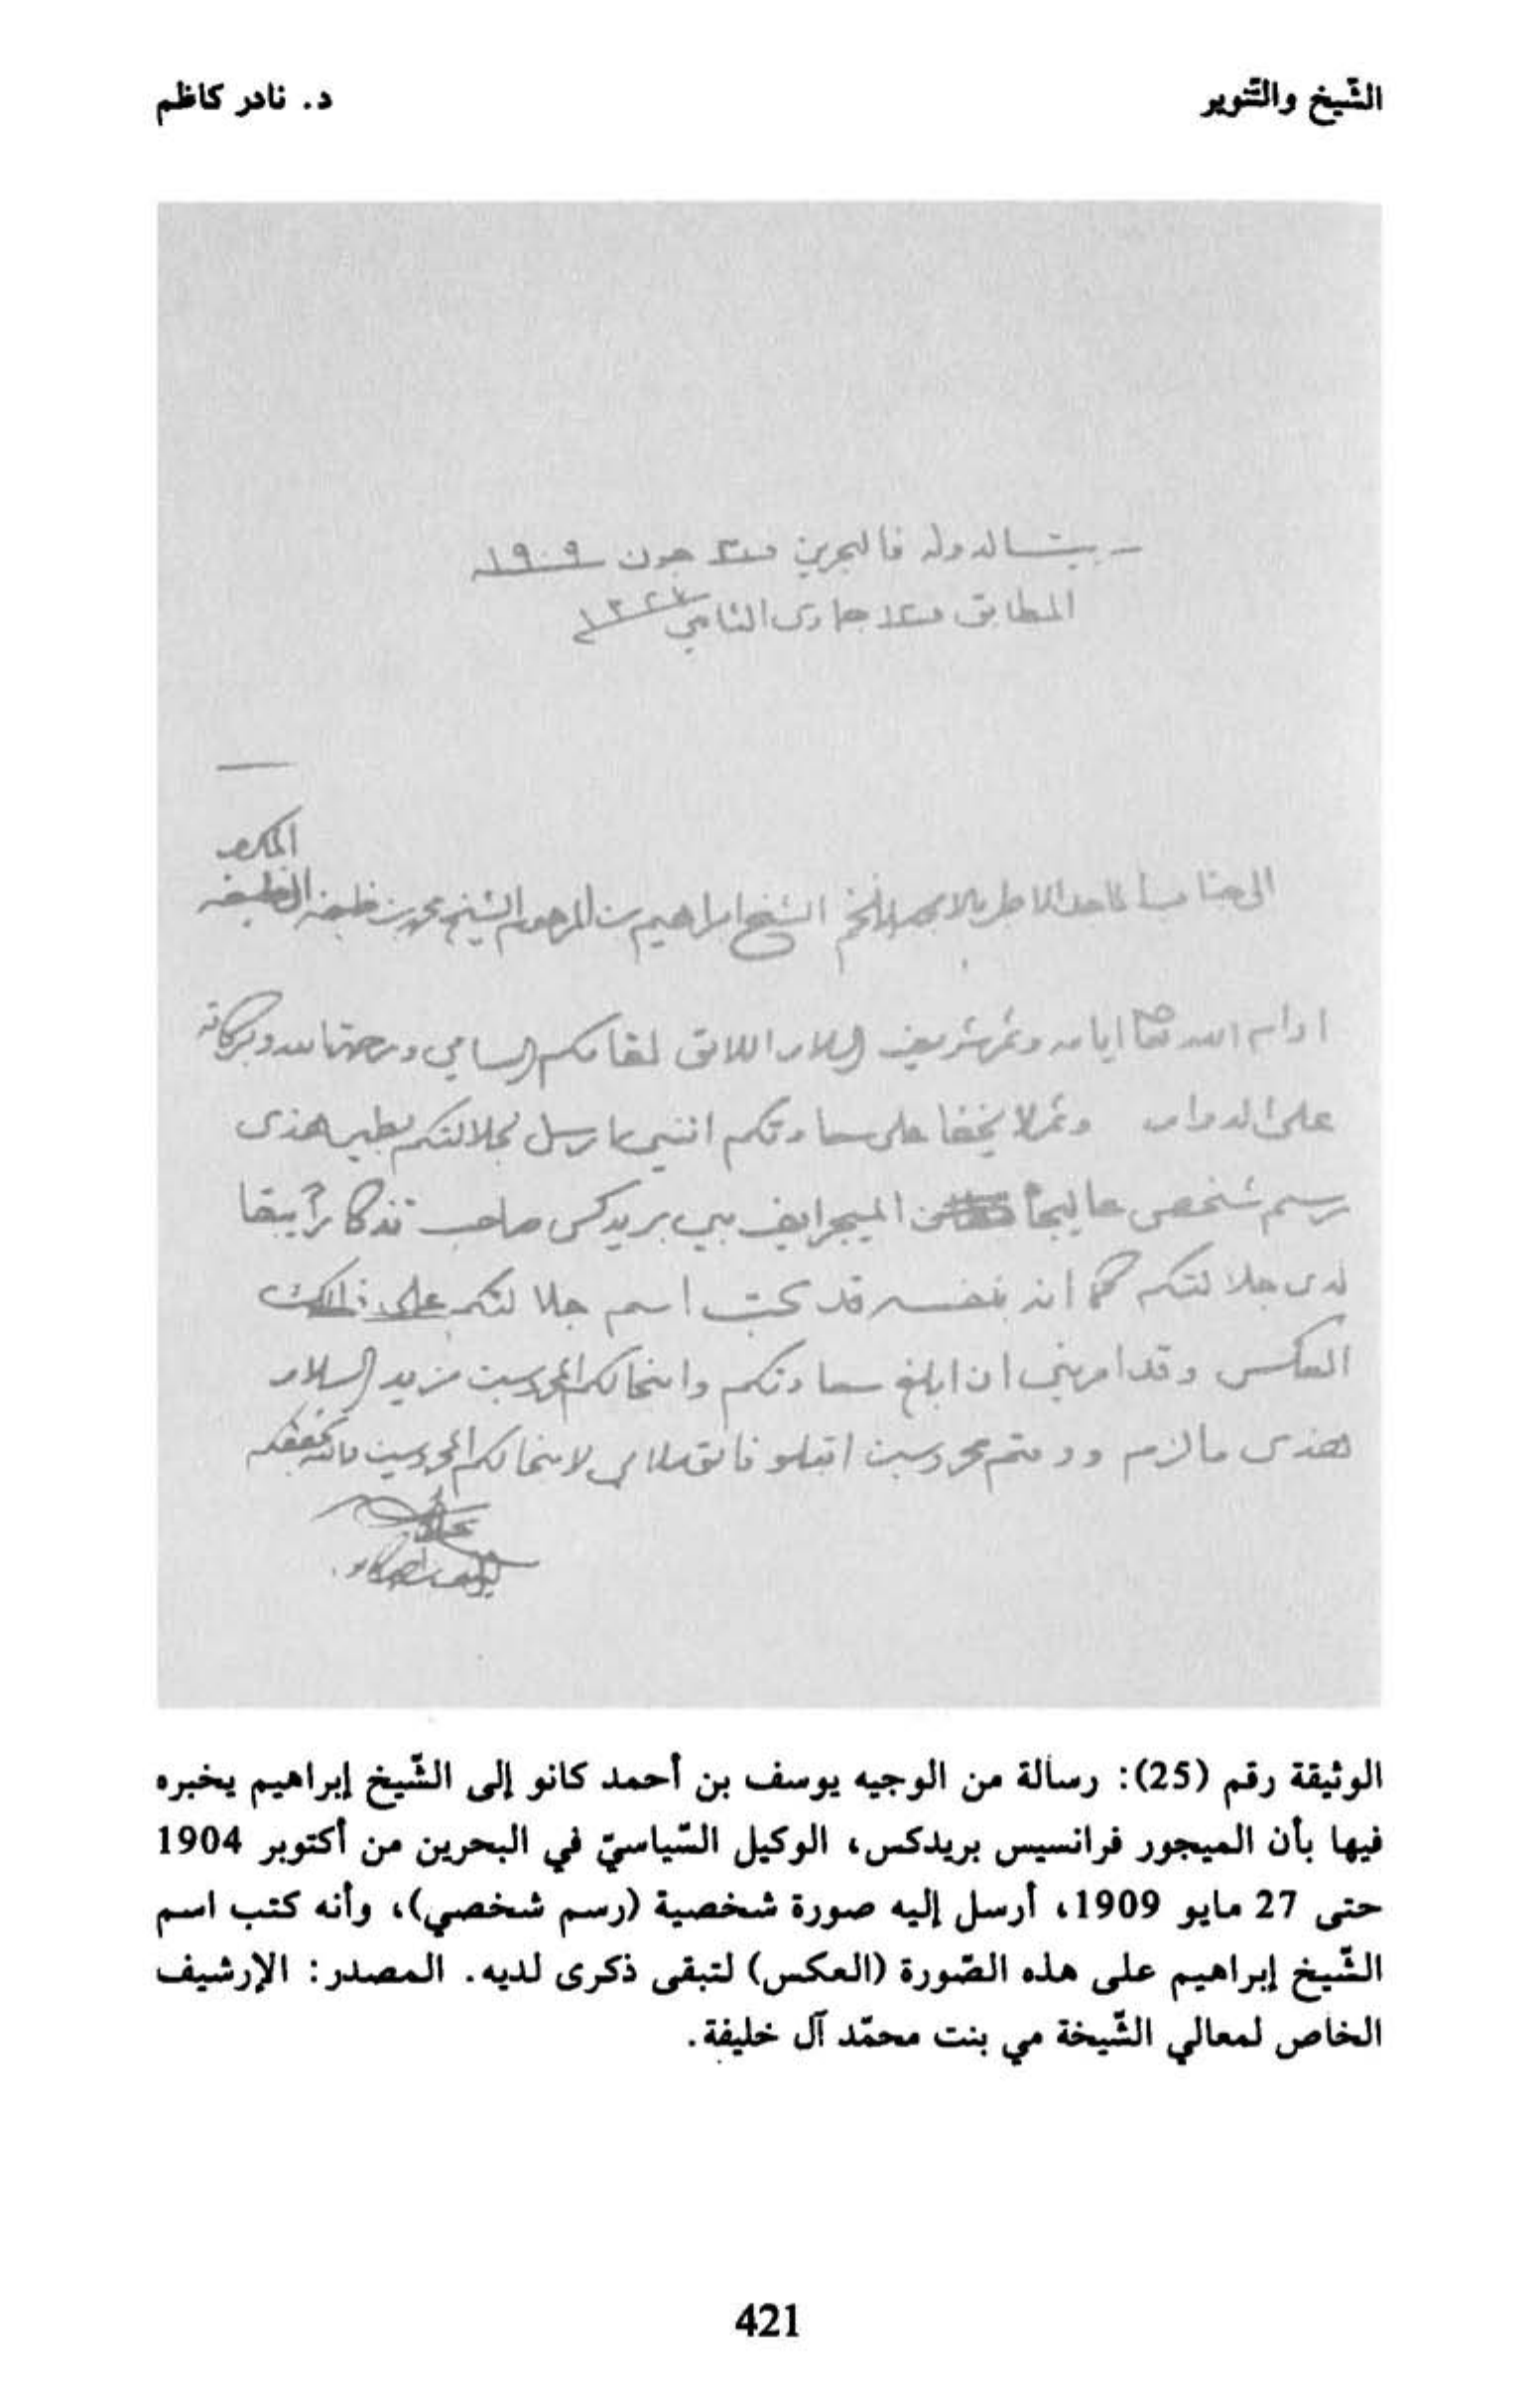 الشّيخ والتّنوير
د. نادر كاظم
بيت الدوله فالبحرين جون ١٩٠٩
المطابق جمادى الثاني ١٣٢٧
المكرم
الى جناب الاجل الامجد الافخم الشيخ ابراهيم بن المرحوم الشيخ محمد بن خليفه الخليفه
ادام الله تعا ايامه وثم شريف السلام اللائق لمقامكم السامي ورحمة الله وبركاته
على الدوام وثم لا يخفا على سعادتكم انني مارسل لجلالتكم بطيه هذى
رسم شخصي عاليجاه من الميجر ايف بي بريدكس صاحب تذكاراً يبقا
لدى جلالتكم كما انه بنفسه قد كتب اسم جلالتكم على ذلك
العكس وقد امرني ان ابلغ سعادتكم وانجالكم المحروسين مزيد السلام
هذى مالزم ودمتم محروسين لانجالكم المحروسين
يوسف بن احمد كانو
الوثيقة رقم (25): رسالة من الوجيه يوسف بن أحمد كانو إلى الشّيخ إبراهيم يخبره
فيها بأن الميجور فرانسيس بريدكس، الوكيل السّياسيّ في البحرين من أكتوبر 1904
حتى 27 مايو 1909، أرسل إليه صورة شخصية (رسم شخصي)، وأنه كتب اسم
الشّيخ إبراهيم على هذه الصّورة (العكس) لتبقى ذكرى لديه. المصدر: الإرشيف
الخاص لمعالي الشّيخة مي بنت محمّد آل خليفة.
421